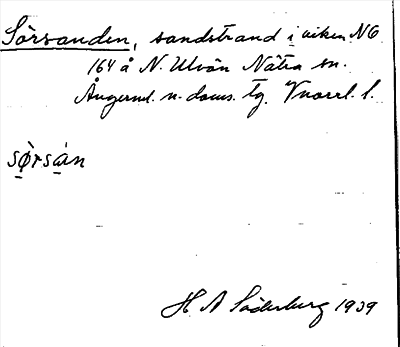 Sörsanden, sandstrand i viken NO
164 å N. Ulvön Nätra sn.
Ångerml. n. doms. tg. Vnorrl. l.
sø̀rsàn
H A Söderberg 1939